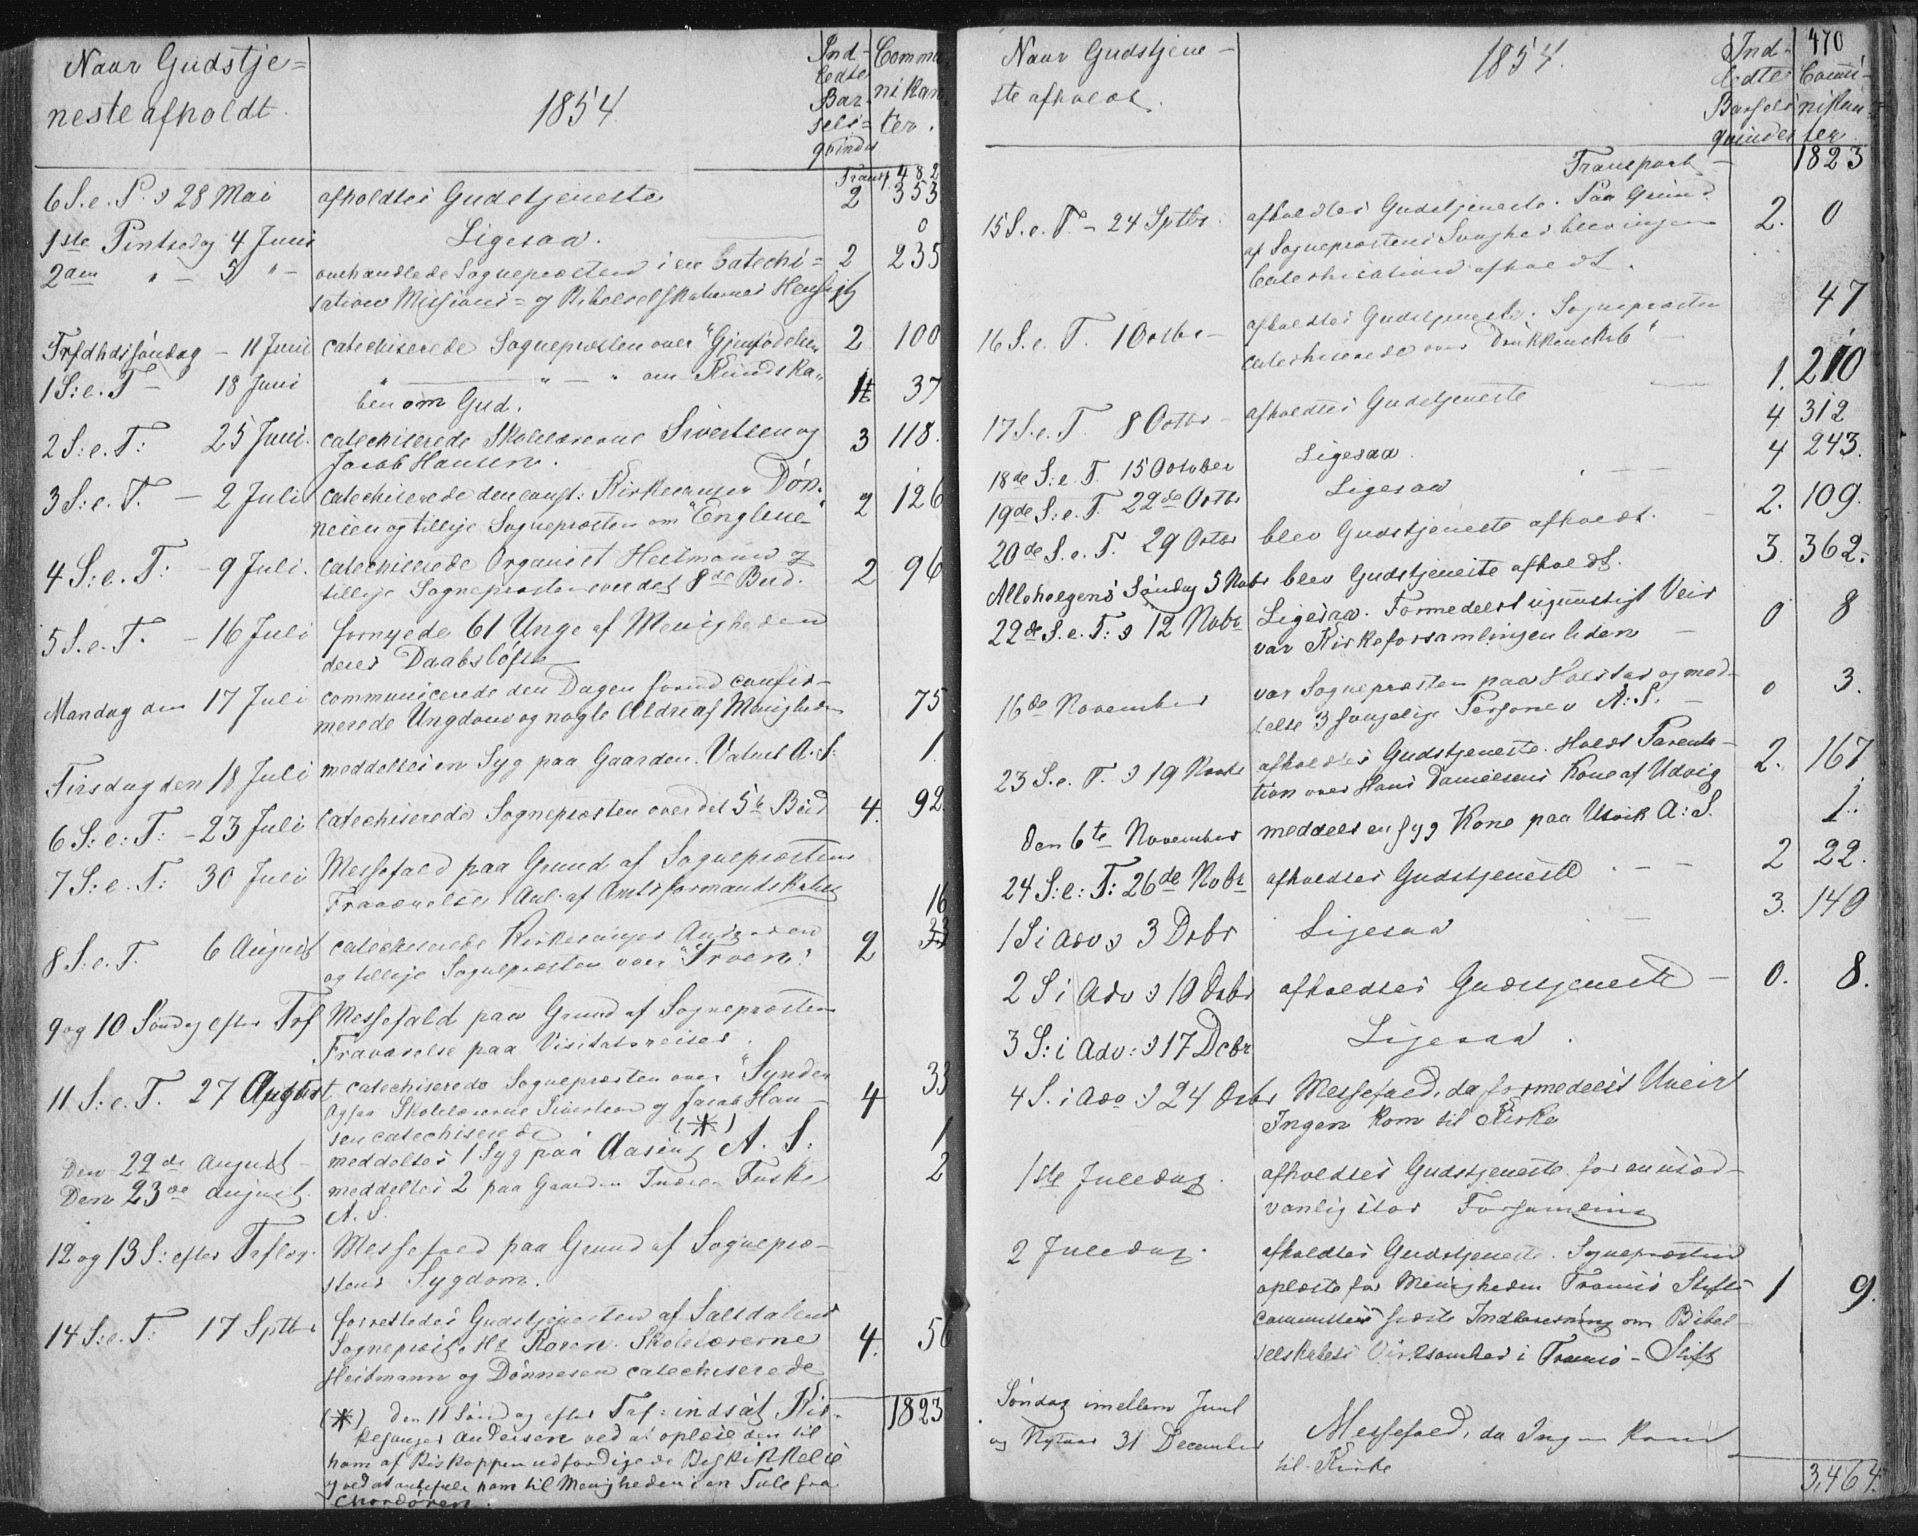 Naar Gudstje=
neste afholdt.
1854
Ind-
ledte
Bar-
sels=
qvinder
Commu
nikan
ter.
Transp. 482
6 S. e. P. d 28 Mai afholdtes Gudstjeneste 2 353
1ste Pintsedag 4 Juni Ligesaa. 0
2den " - 5 " - omhandlede Sognepræsten i en Catechi= 2 235
sation Missions= og Bibelselskabernes Hensigt
Trfdhdssöndag - 11 Juni catechiserede Sognepræsten over "Gjenfödelsen 2 100
1 S: e. T - 18 Juni " " - " om Kundska= 1 37
ben om Gud.
2 S: e. T: 25 Juni. catechiserede Skolelærerne Sivertsen og 3 118.
Jacob Hansen.
3 S: e. T. - 2 Juli catechiserede den const: Kirkesanger Dön-
nesen og tillige Sognepræsten om "Englene" 2 126
4 S: e. T: - 9 Juli. catechiserede Organist Heitmann og
tillige Sognepræsten over det 8de Bud. 2 96
5 S. e. T. - 16 Juli fornyede 61 Unge af Menigheden
deres Daabslöfte
Mandag den 17 Juli communicerede den Dagen forud confir-
merede Ungdom og nogle Ældre af Menigheden 75
Tirsdag den 18 Juli meddeltes en Syg paa Gaarden Valnes A. S. 1.
6 S: e: T: - 23 Juli Catechiserede Sognepræsten over det 5te Bud 4. 92
7 S: e. T: 30 Juli Messefald paa Grund af Sognepræstens
Fraværelse i Anl. af Amtsformandskabet
16
8 S. e. T. 6 August catechiserede Kirkesanger Andersen
og tillige Sognepræsten over "Troen". 2
9 og 10 Söndag efter Tref Messefald paa Grund af Sognepræstens
Fraværelse paa Visitatsreiser.
11 S: e. T. 27 August catechiserede Sognepræsten over "Synden 33
Ogsaa Skolelærerne Sivertsen og Jacob Han- 4
sen catechiserede (*)
Den 22de August - meddeltes 1 Syg paa Aaseng A. S: 1
Den 23de August. meddeltes 2 paa Gaarden Indre Fuske 2
A. S.
12 og 13 S: efter Treflog. Messefald paa Grund af Sognepræ-
stens Sygdom.
14 S: e. T: 17 Sptbr forrettedes Gudstjenesten af Saltdalens
Sognepræst, Hr Koren. Skolelærerne 4. 50
Heitmann og Dönnesen catechiserede
1823
(*) den 11 Sönd og efter Tref: indsat Kir-
kesanger Andersen ved at oplæse den til
ham af Biskoppen udfærdigede Beskikkelse
og ved at anbefale ham til Menigheden i en Tale fra
Chordören.
470
Naar Gudstjene-
ste afholdt.
1854.
Ind-
ledte
Barsels
qvinder
Commu-
nikan-
ter
Transport - 1823
15 S. e. T. - 24 Sptbr. afholdtes Gudstjeneste. Paa Grund
af Sognepræstens Svaghed blev ingen 2. 0
Catechisation afholdt.
16 S. e. T. 1 Octbr - afholdtes Gudstjeneste. Sognepræsten 47
catechiserede over "Drukkenskab" -
17 S. e. T. 8 Octbr - afholdtes Gudstjeneste 1. 210
18de S: e. T. 15 October Ligesaa. 4 312
19de S: e. T. 22de Octbr Ligesaa 4 243.
20de S. e. T. 29 Octbr blev Gudstjeneste afholdt. 2. 109.
Allehelgens Söndag 5 Nobr blev Gudstjeneste afholdt. 3. 362.
22de S. e. T: d 12 Nobr Ligesaa. Formedelst ugunstigt Veir 0 8
var Kirkeforsamlingen liden -
16de November var Sognepræsten paa Holstad og med- 0 3.
delte 3 svagelige Personer A: S.
23 S. e. T. d 19 Novbr afholdtes Gudstjeneste. Holdt Parenta- 2. 167
tion over Hans Danielsens Kone af Udvig
Den 6te November meddelt en syg Kone paa Utvik A: S. 1.
24 S: e: T: 26de Nobr afholdtes Gudstjeneste - - 2 22.
1 S i Adv d 3 Dcbr Ligesaa 3. 140
2 S i Adv d 10 Dcbr afholdtes Gudstjeneste - 0. 8.
3 S: i Adv: d 17 Dcbr Ligesaa.
4 S. i Adv: d 24 Dcbr Messefald, da formedelst Uveir
Ingen kom til Kirke
1ste Juledag. afholdtes Gudstjeneste for en usæd-
vanlig stor Forsamling
2 Juledag. afholdtes Gudstjeneste. Sognepræsten
oplæste for Menigheden Tromsö Stifts 1 9.
committees förste Indberetning om Bibel
selskabets Virksomhed i Tromsö-Stift
Söndag imellem Juul
og Nytaar 31 December Messefald, da Ingen kom
til Kirke
3,464.